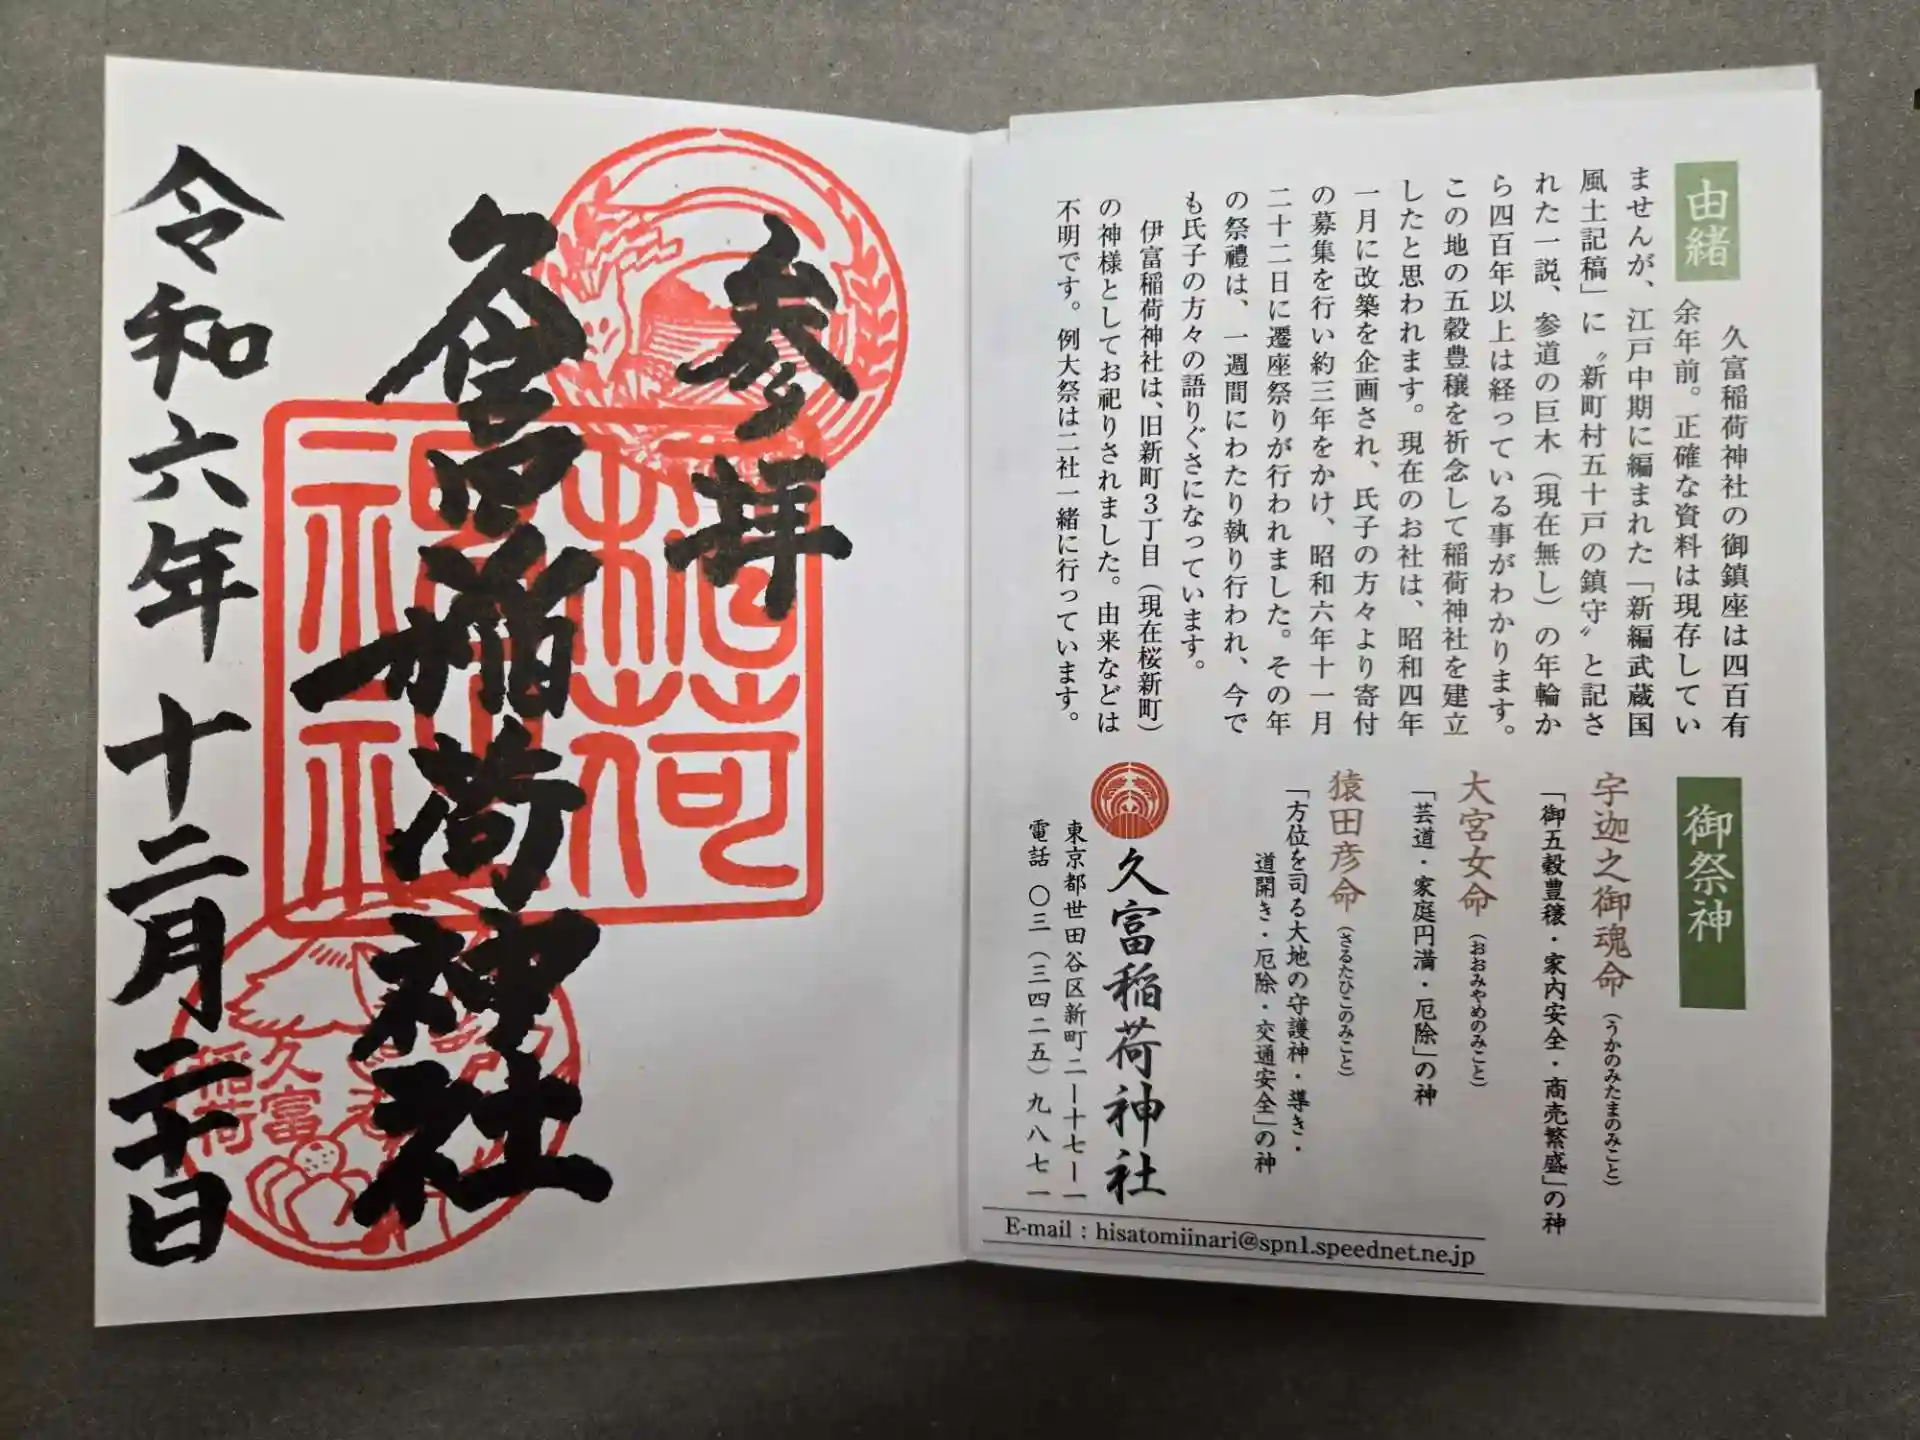 由緒
久富稲荷神社の御鎮座は四百有
余年前。正確な資料は現存してい
ませんが、江戸中期に編まれた「新編武蔵国
風土記稿」に〝新町村五十戸の鎮守〟と記さ
れた一説、参道の巨木（現在無し）の年輪か
ら四百年以上は経っている事がわかります。
この地の五穀豊穣を祈念して稲荷神社を建立
したと思われます。現在のお社は、昭和四年
一月に改築を企画され、氏子の方々より寄付
の募集を行い約三年をかけ、昭和六年十一月
二十二日に遷座祭りが行われました。その年
の祭禮は、一週間にわたり執り行われ、今で
も氏子の方々の語りぐさになっています。
伊富稲荷神社は、旧新町３丁目（現在桜新町）
の神様としてお祀りされました。由来などは
不明です。例大祭は二社一緒に行っています。
御祭神
宇迦之御魂命（うかのみたまのみこと）
「御五穀豊穣・家内安全・商売繁盛」の神
大宮女命（おおみやめのみこと）
「芸道・家庭円満・厄除」の神
猿田彦命（さるたひこのみこと）
「方位を司る大地の守護神・導き・
道開き・厄除・交通安全」の神
久富稲荷神社
東京都世田谷区新町二ー十七ー一
電話 〇三（三四二五）九八七一
E-mail : hisatomiinari@spn1.speednet.ne.jp
参拝
久富稲荷神社
令和六年 十二月二十日
久富
稲荷